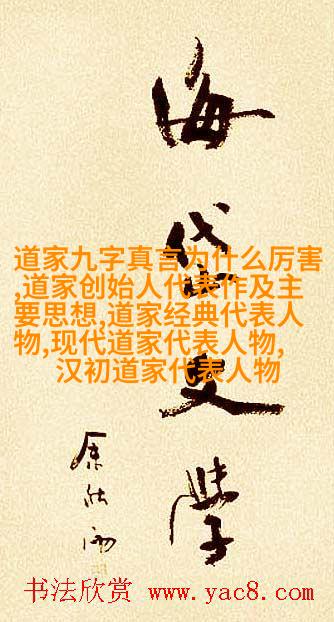 海岱文學
余秋雨
道家九字真言为什么厉害
,道家创始人代表作及主
要思想,道家经典代表人
物,现代道家代表人物,
汉初道家代表人物
书法欣赏 www.yac8.com